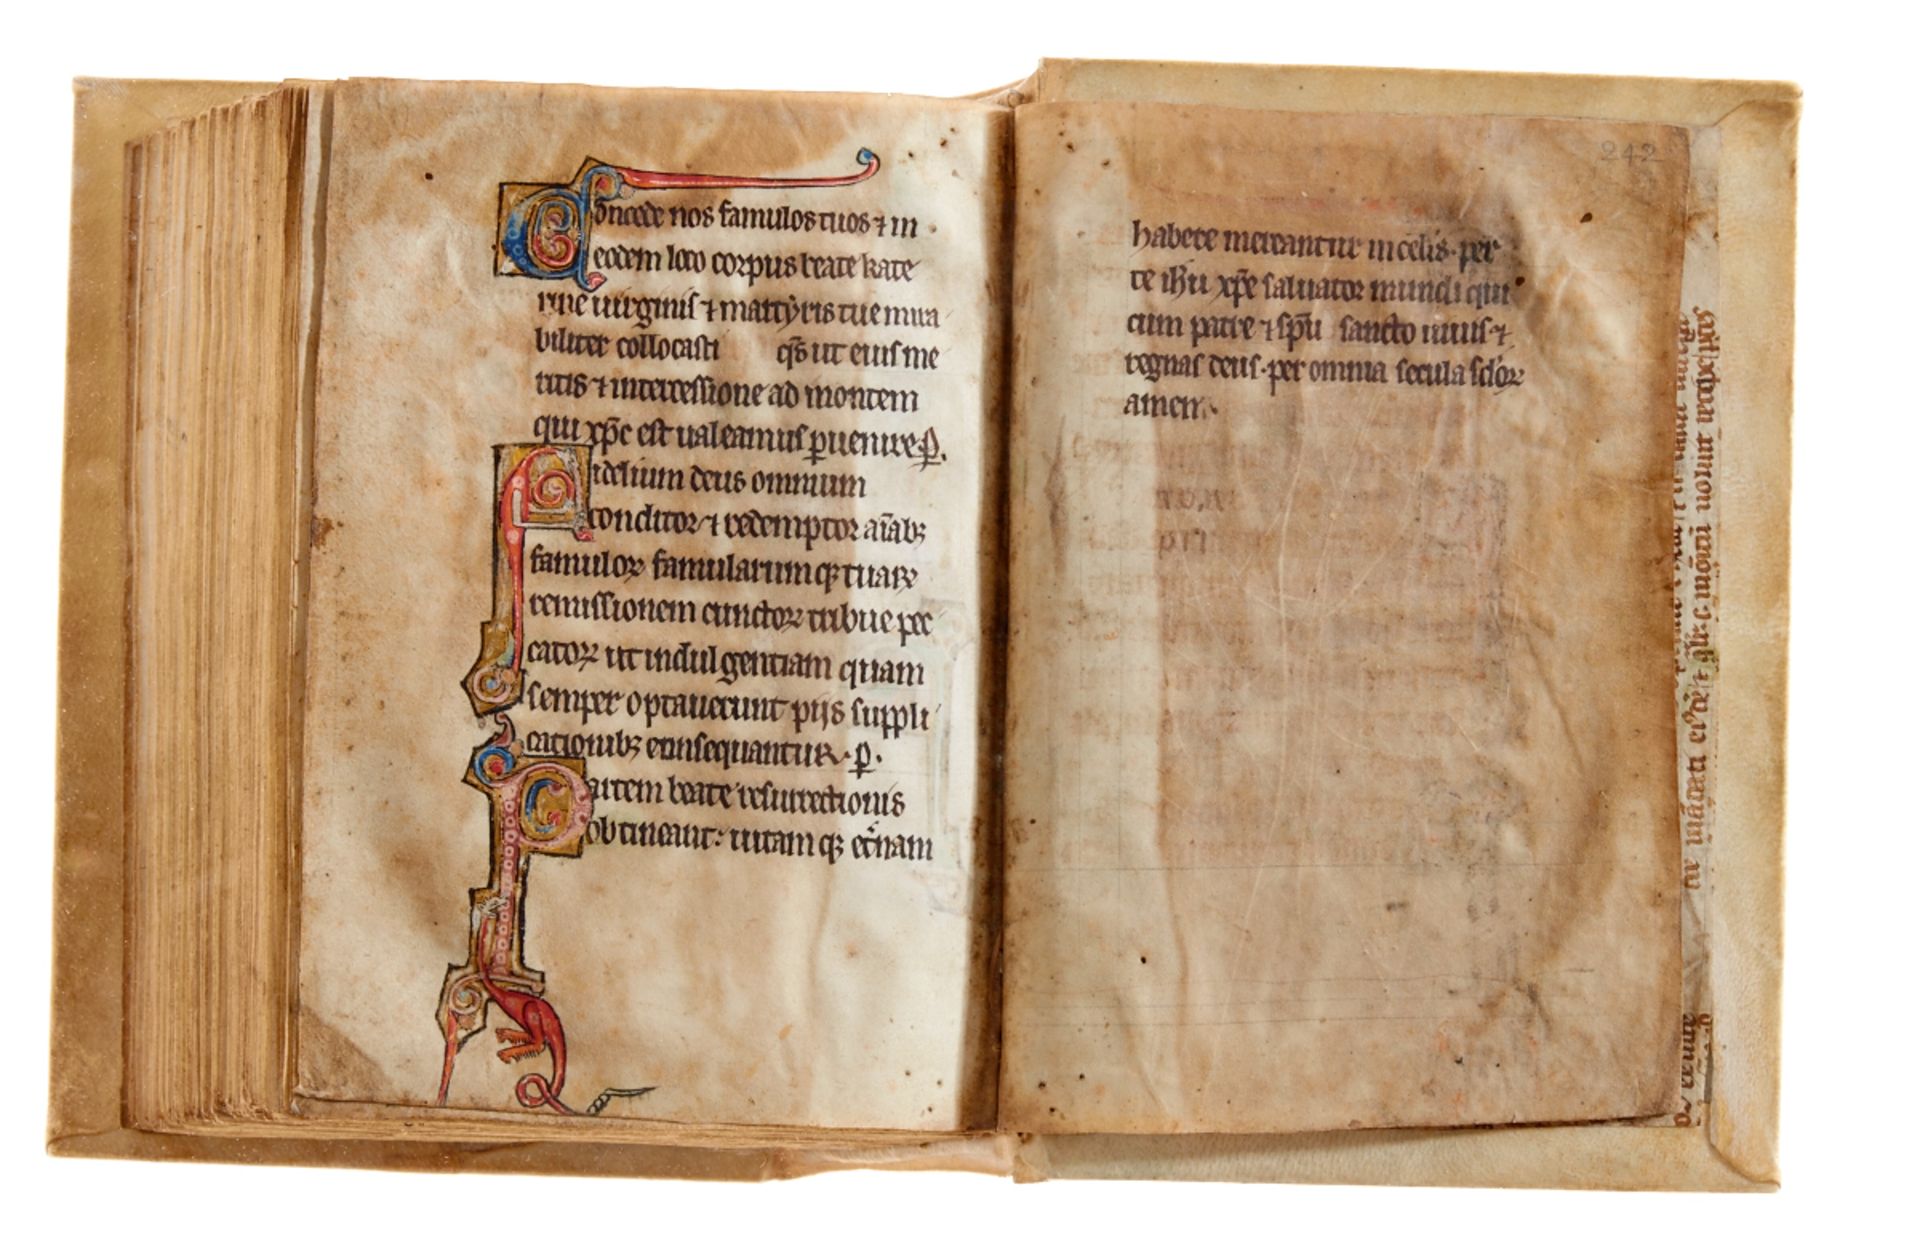 Concede nos famulos tuos ⁊ in
eodem loco corpus beate kate
rine uirginis ⁊ martyris tue mira
biliter collocasti qs̄ ut eius me
ritis ⁊ intercessione ad montem
qui xp̄c est ualeamus ꝑuenire ꝑ.
Fidelium deus omnium
conditor ⁊ redemptor aīabꝫ
famuloꝝ famularumqꝫ tuaꝝ
remissionem cunctoꝝ tribue pec
catoꝝ ut indulgentiam quam
semper optauerunt piis suppli
cationibꝫ consequantur. ꝑ.
Partem beate resurrectionis
obtineant: uitam qꝫ et̄nam
242
habere mereantur in celis. per
te ihū xp̄e saluator mundi qui
cum patre ⁊ sp̄u sancto uiuis ⁊
regnas deus. per omnia secula sc̄loꝝ
amen.